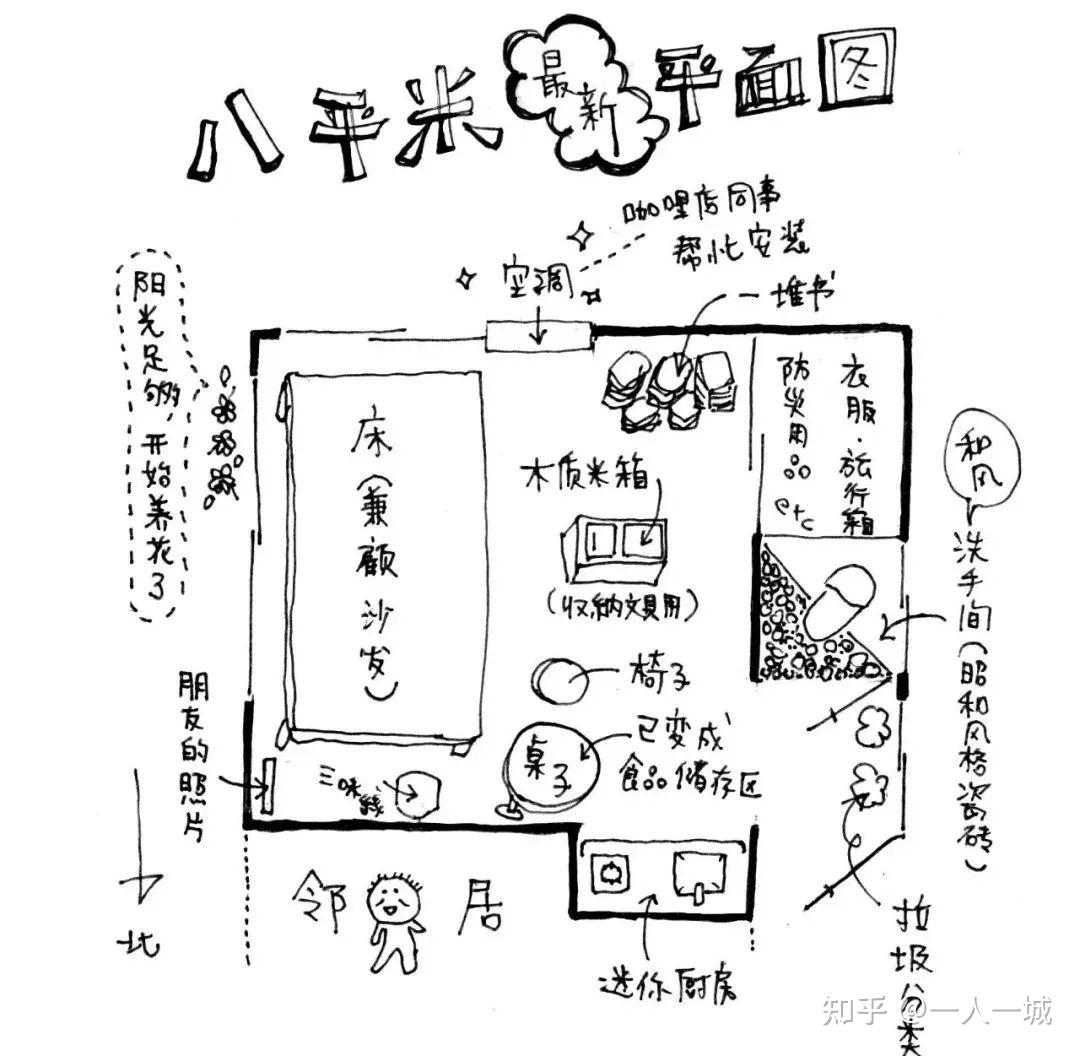 八平米最新平面图
咖哩店同事
帮忙安装
空调
一堆书
阳光足够,开始养花了
床(兼顾沙发)
衣服·旅行箱
防灾用品
etc
和风
洗手间(昭和风格瓷砖)
木质米箱
(收纳文具用)
椅子
桌子
已变成
食品储存区
朋友的照片
三味线
北
邻居
迷你厨房
垃圾分类
知乎 @一人一城